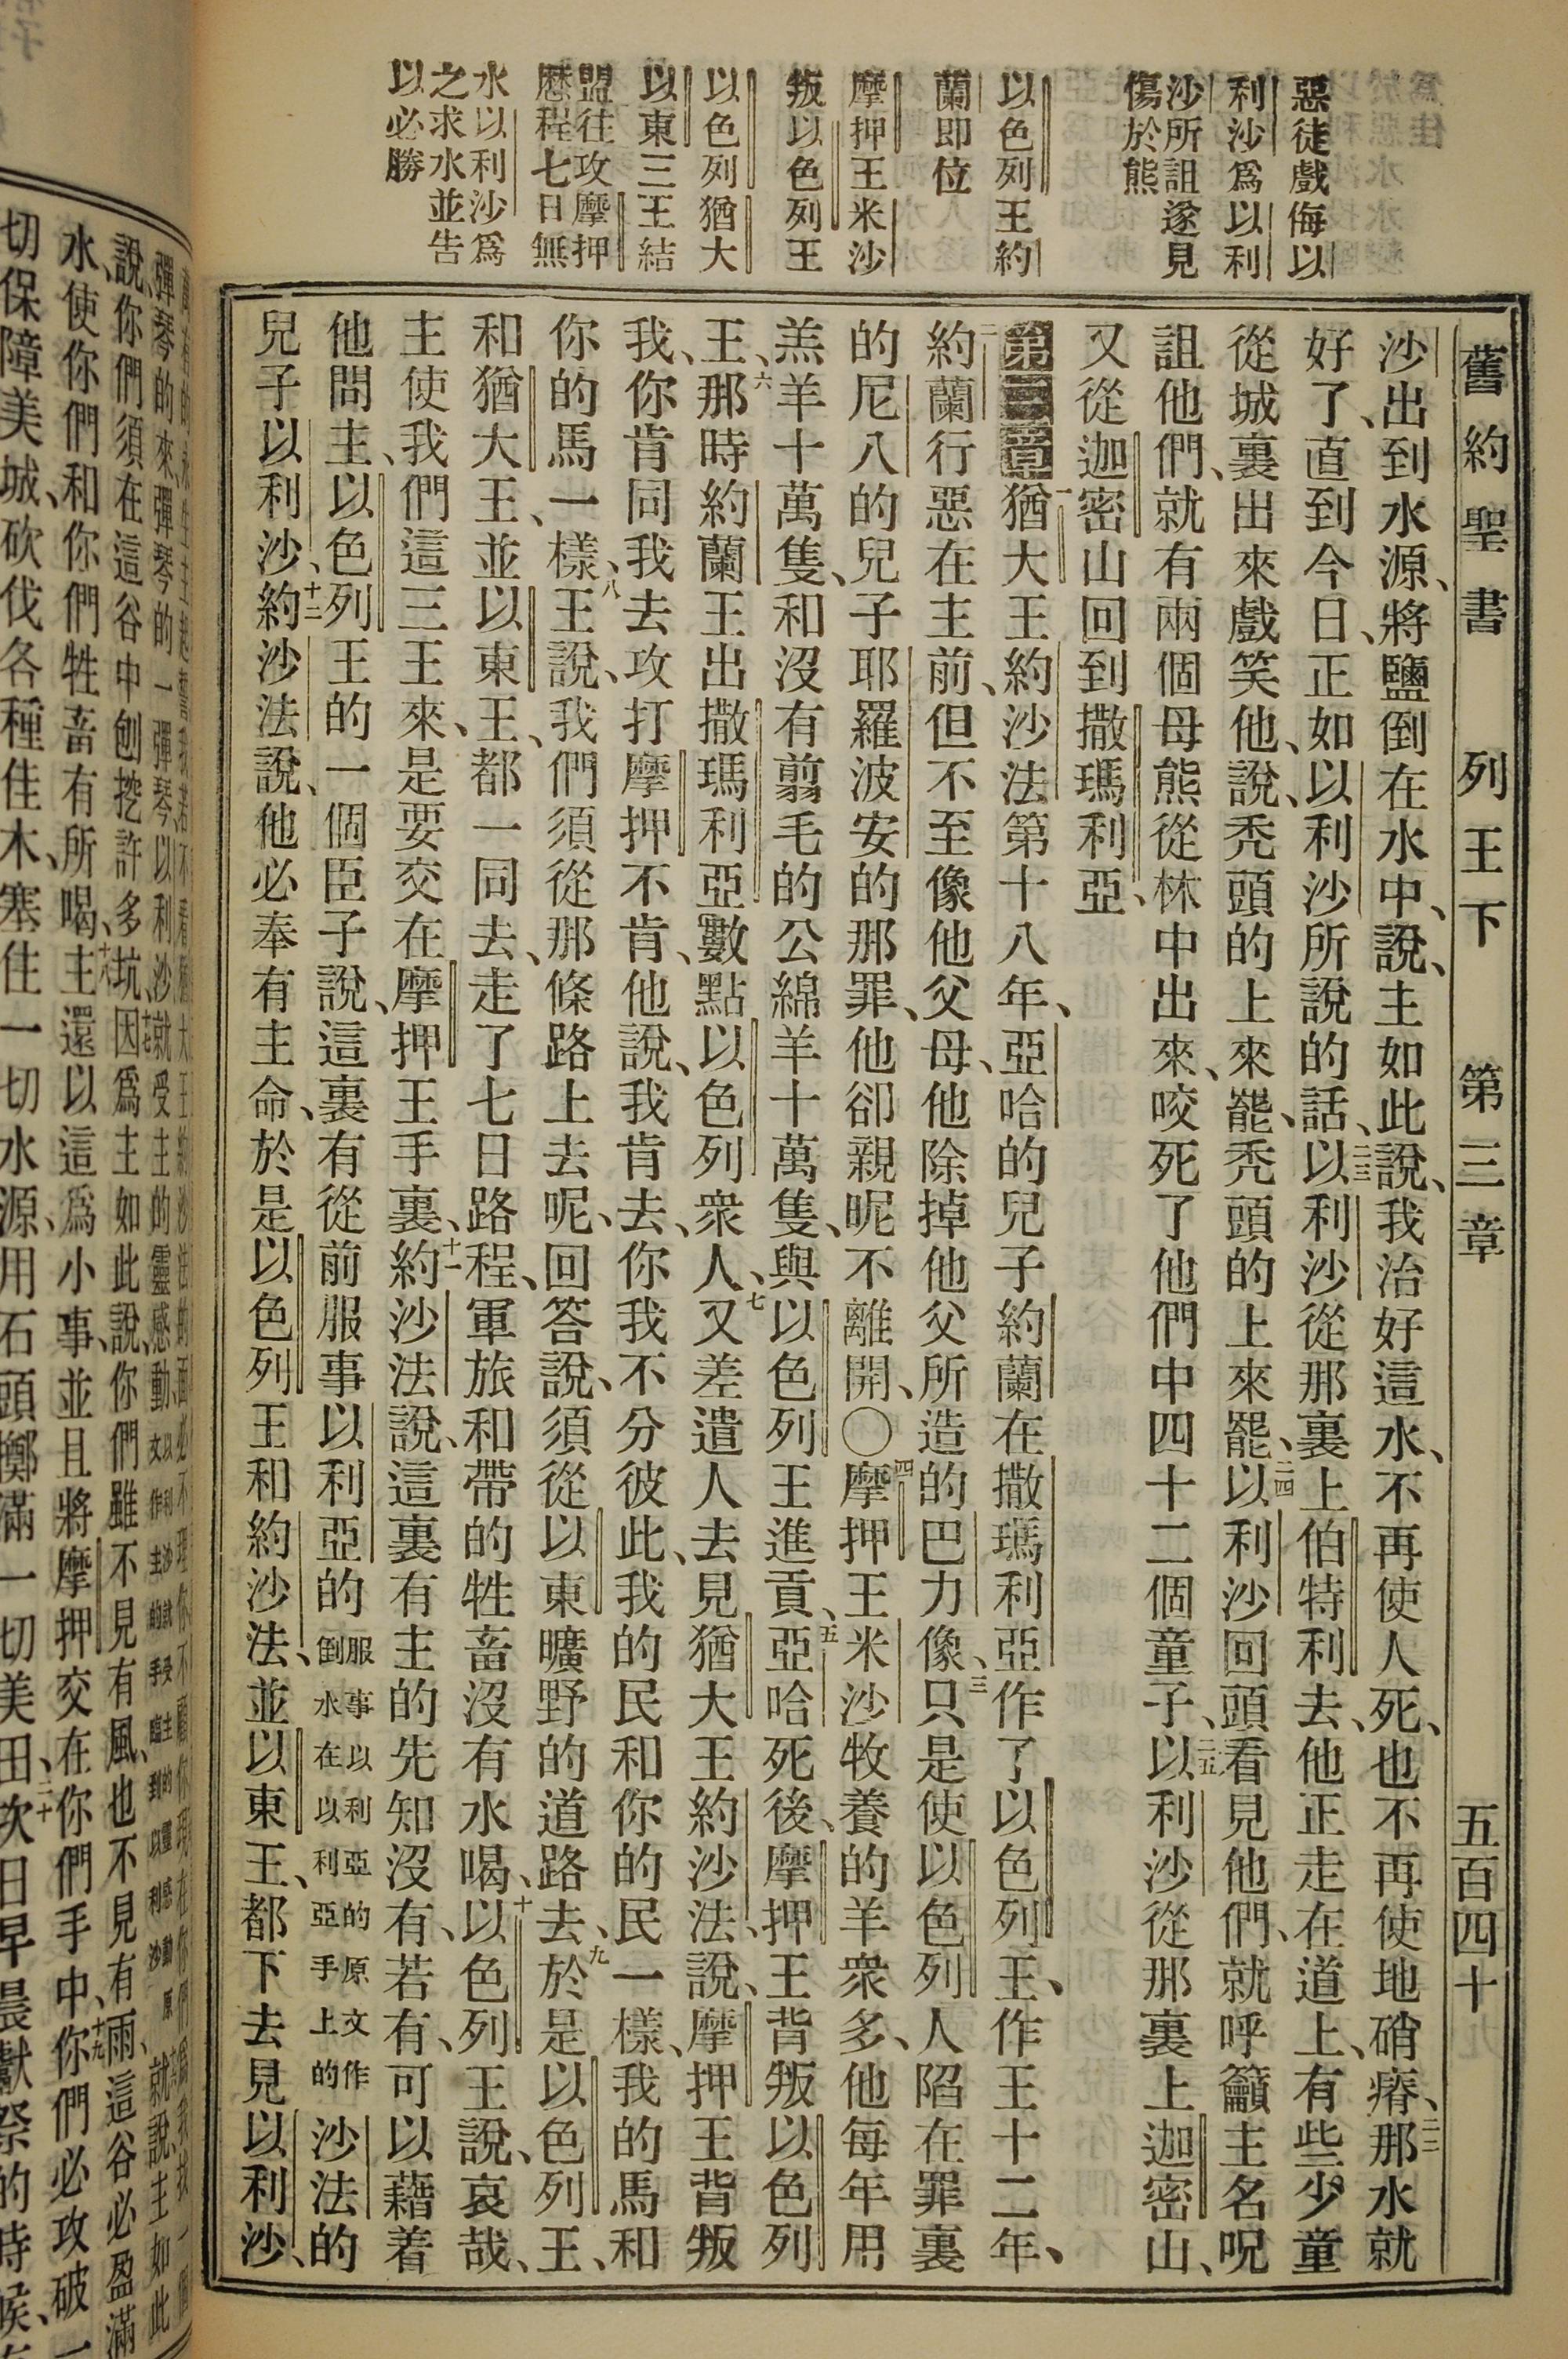 惡徒戲侮以
利沙爲以利
沙所詛遂見
傷於熊
以色列王約
蘭即位
摩押王米沙
叛以色列王
以色列猶大
以東三王結
盟往攻摩押
歷程七日無
水以利沙爲
之求水並告
以必勝
舊約聖書 列王下 第三章 五百四十
沙出到水源、將鹽倒在水中、說、主如此說、我治好這水、不再使人死、也不再使地磽瘠、二二那水就
好了、直到今日、正如以利沙所說的話、二三以利沙從那裏上伯特利去、他正走在道上、有些少童
從城裏出來戲笑他、說、禿頭的上來罷、禿頭的上來罷、二四以利沙回頭看見他們、就呼籲主名呪
詛他們、就有兩個母熊從林中出來、咬死了他們中四十二個童子、二五以利沙從那裏上迦密山、
又從迦密山回到撒瑪利亞、
第三章 一猶大王約沙法第十八年、亞哈的兒子約蘭在撒瑪利亞作了以色列王、作王十二年、
二約蘭行惡在主前、但不至像他父母、他除掉他父所造的巴力像、三只是使以色列人陷在罪裏
的尼八的兒子耶羅波安的那罪、他卻親昵不離開、〇四摩押王米沙牧養的羊衆多、他每年用
羔羊十萬隻、和沒有翦毛的公綿羊十萬隻、與以色列王進貢、五亞哈死後、摩押王背叛以色列
王、六那時約蘭王出撒瑪利亞、數點以色列衆人、七又差遣人去見猶大王約沙法、說、摩押王背叛
我、你肯同我去攻打摩押不肯、他說、我肯去、你我不分彼此、我的民和你的民一樣、我的馬和
你的馬一樣、八王說、我們須從那條路上去呢、回答說、須從以東曠野的道路去、九於是以色列王、
和猶大王、並以東王、都一同去、走了七日路程、軍旅和帶的牲畜沒有水喝、十以色列王說、哀哉、
主使我們這三王來、是要交在摩押王手裏、十一約沙法說、這裏有主的先知沒有、若有、可以藉着
他問主、以色列王的一個臣子說、這裏有從前服事以利亞的服事以利亞的原文作倒水在以利亞手上的沙法的
兒子以利沙、十二約沙法說、他必奉有主命、於是以色列王和約沙法、並以東王、都下去見以利沙、
說、你們須在這谷中刨挖許多坑、十七因爲主如此說、你們雖不見有風、也不見有雨、這谷必盈滿
水、使你們和你們牲畜有所喝、十八主還以這爲小事、並且將摩押交在你們手中、十九你們必攻破一
切保障美城、砍伐各種佳木、塞住一切水源、用石頭擲滿一切美田、二十次日早晨獻祭的時候、